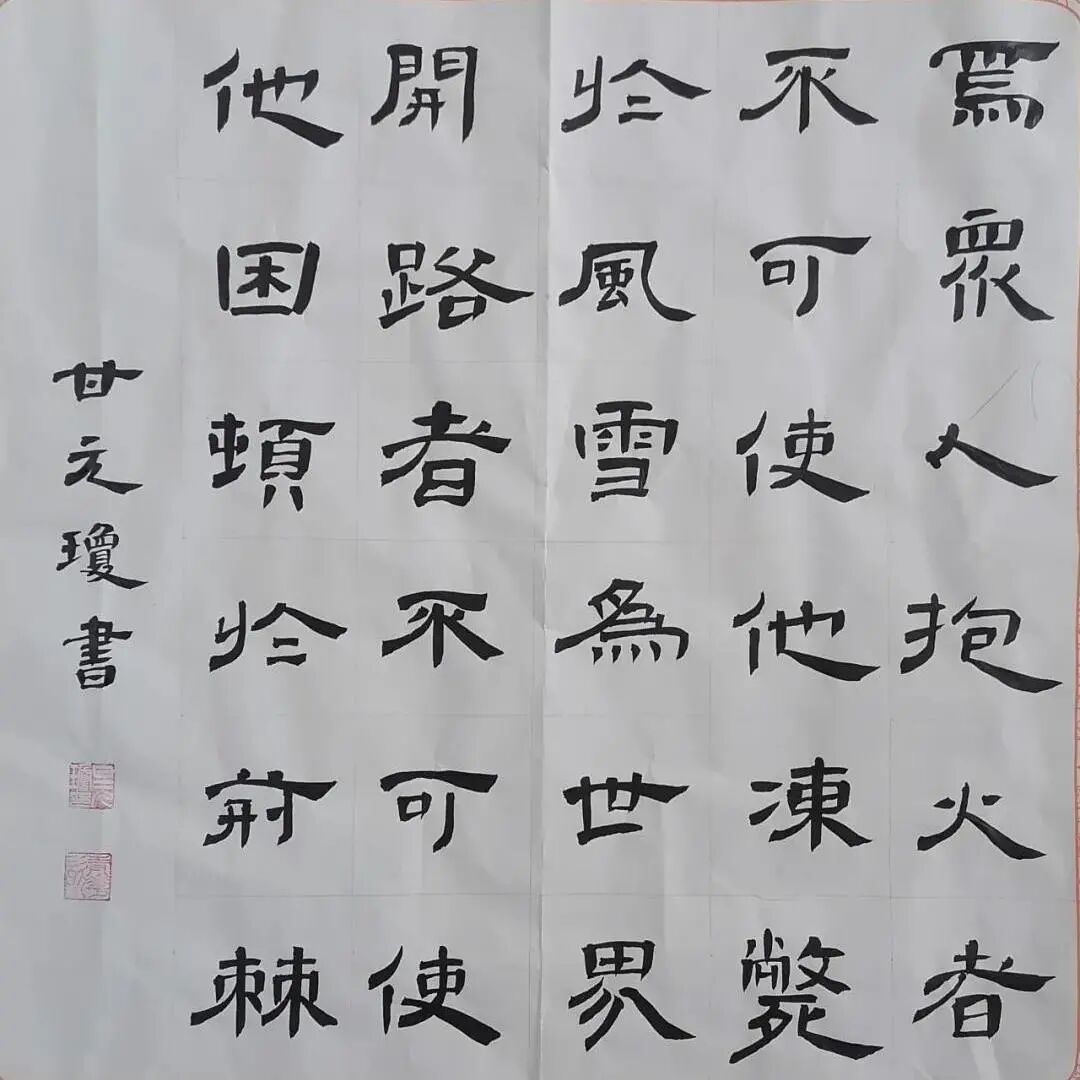 為眾人抱火者
不可使他凍斃
於風雪為世界
開路者不可使
他困頓於荊棘
甘元瓊書